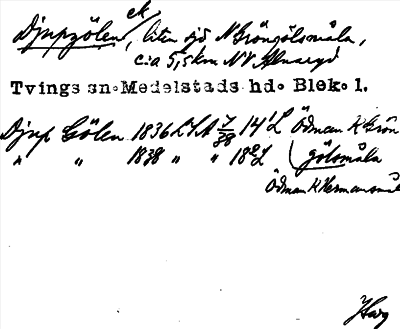 Djupgölen, ek
liten sjö N Gröngölsmåla,
c:a 5,5 km NV Alnaryd
Tvings sn. Medelstads hd. Blek. l.
Djup Gölen 1836 LSA 7/38 14'L Ödman K Grön
" " 1838 " " 182 L gölsmåla
Ödman K Hermansmål